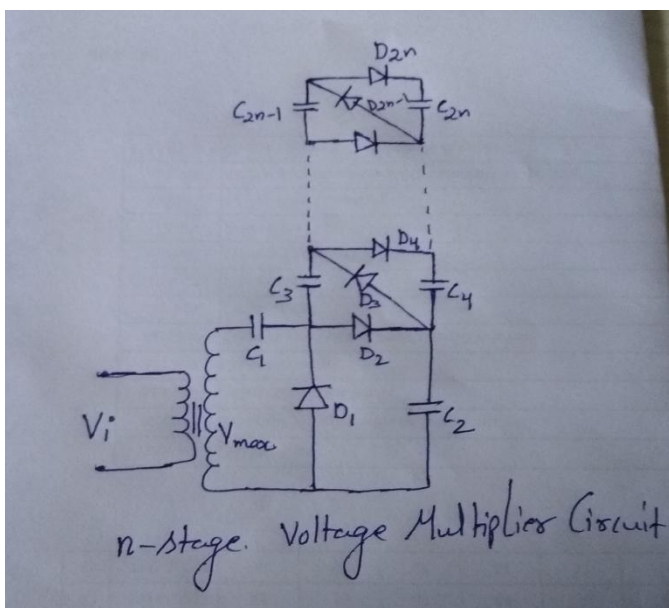 D2n
C2n-1 D2n-1 C2n
D4
C3 D3 C4
C1 D2
Vi Vmax D1 C2
n-stage. Voltage Multiplier Circuit